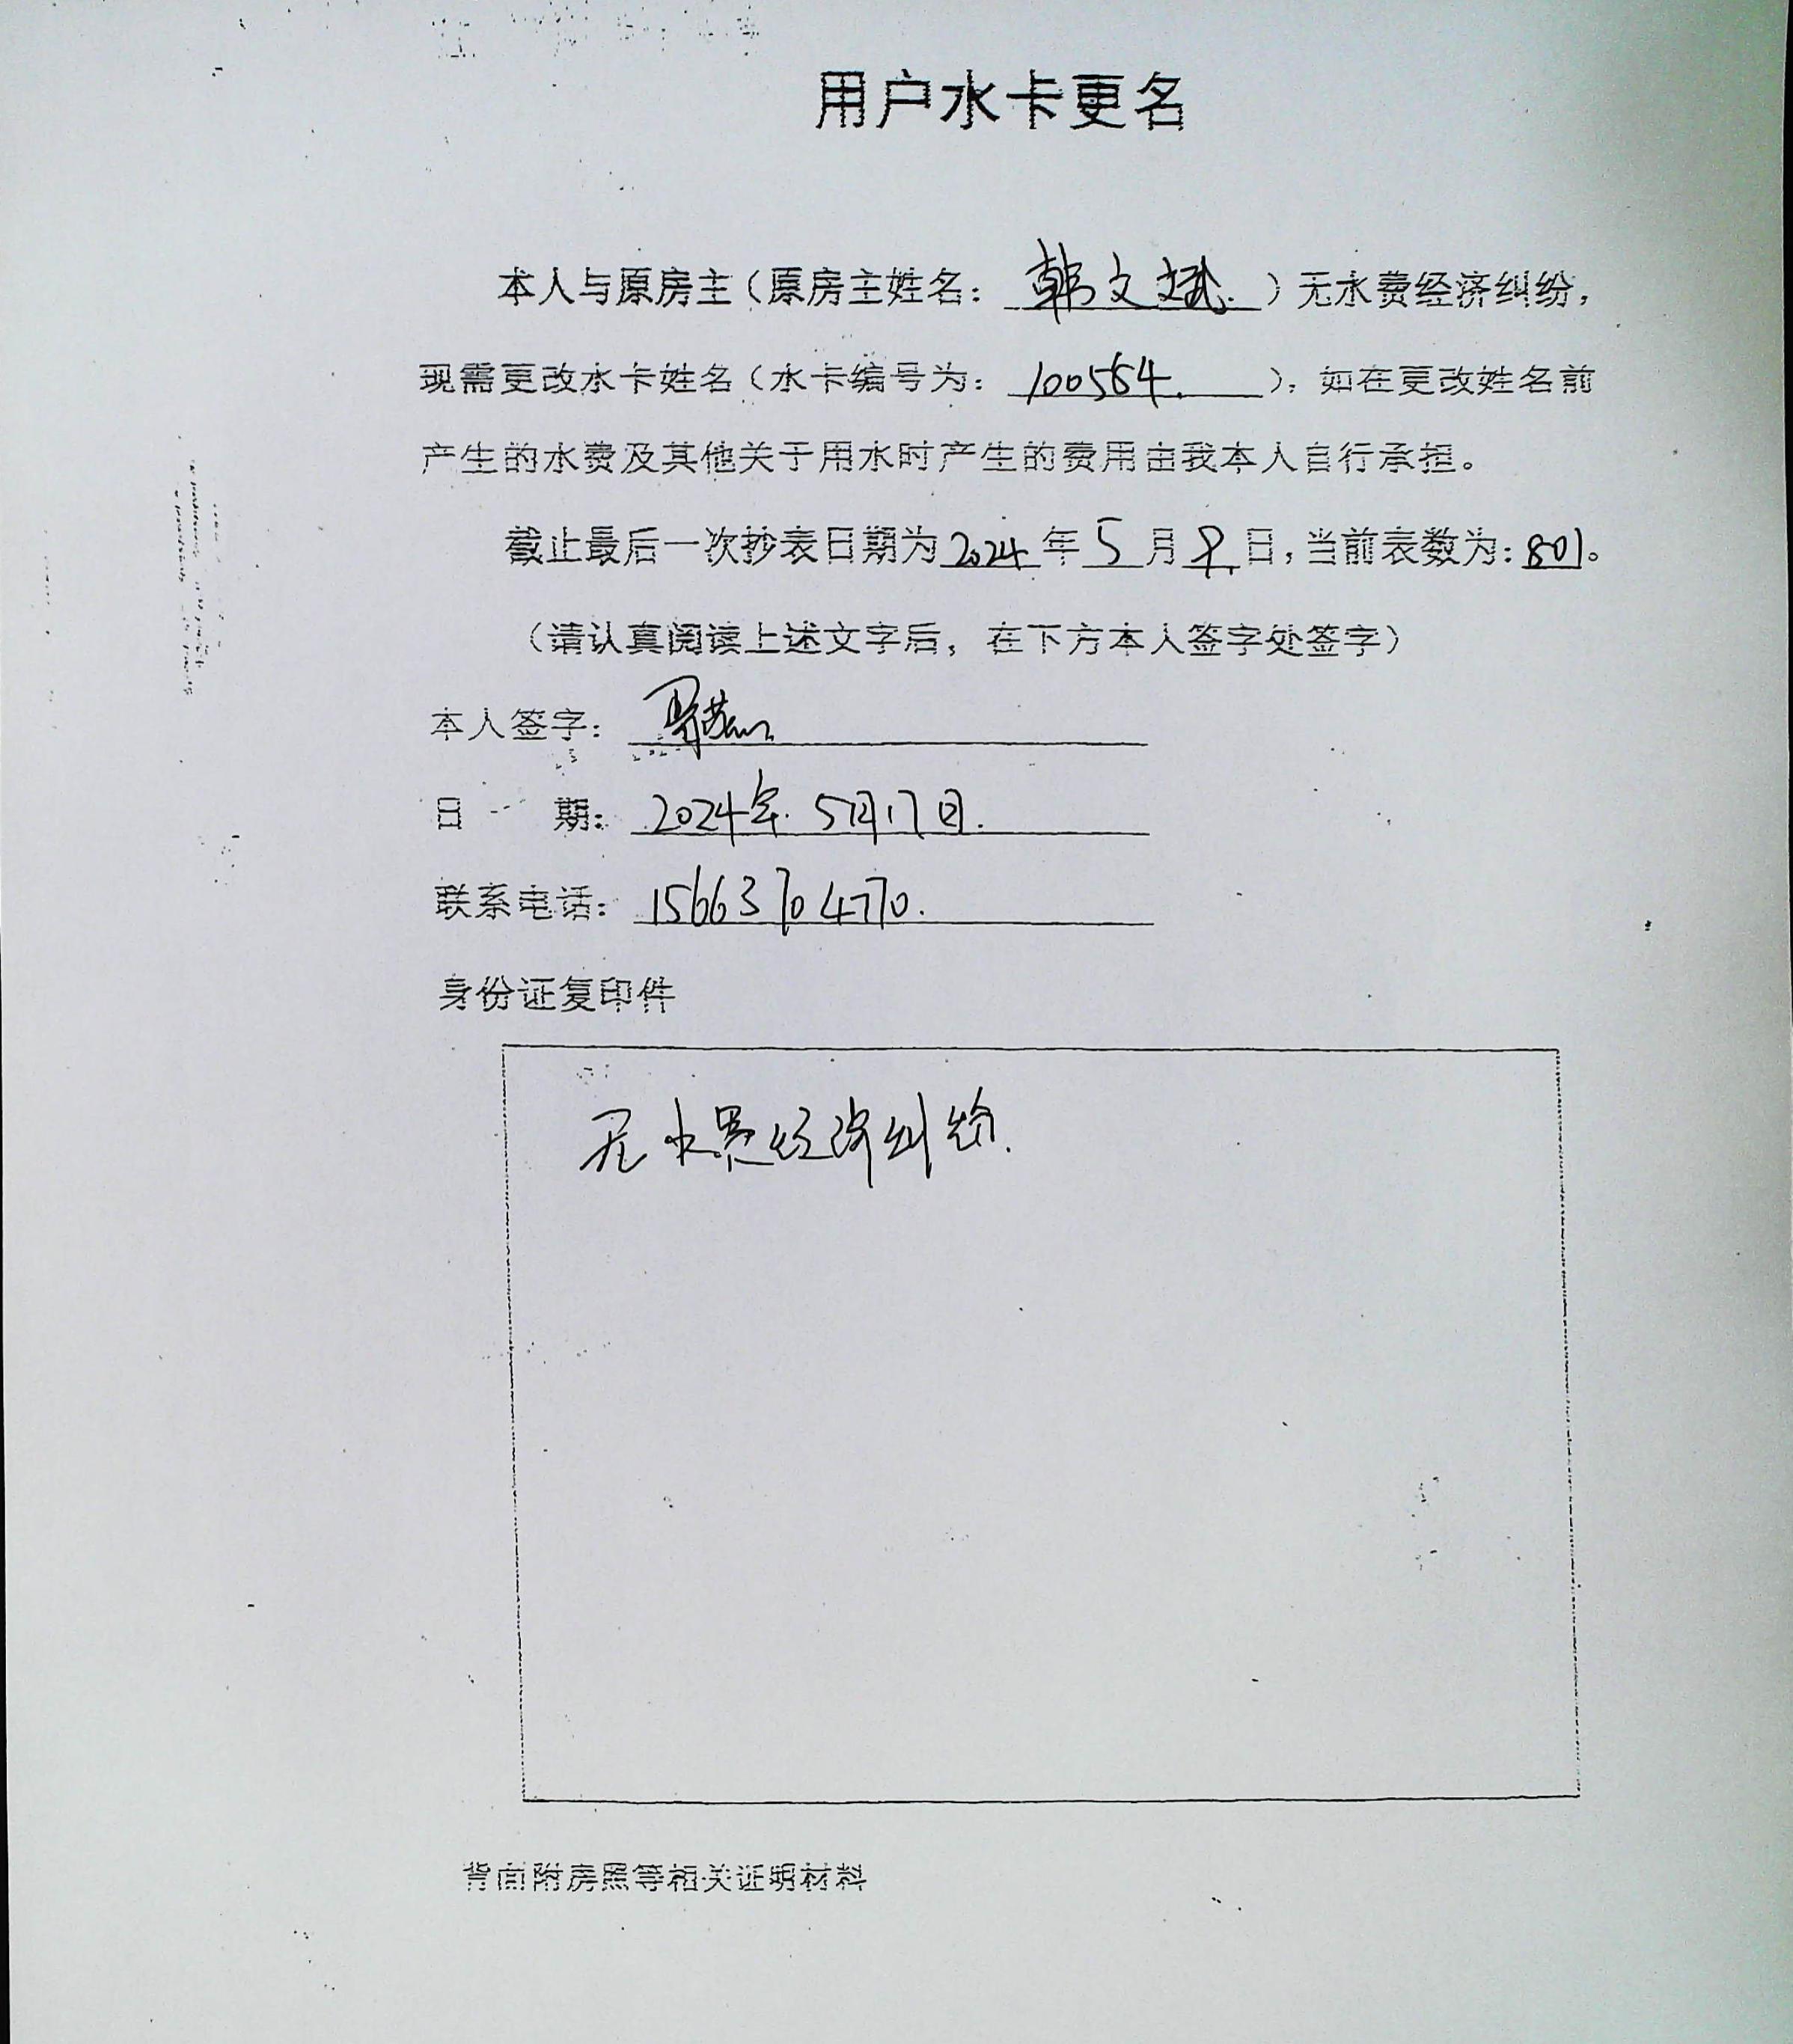 用户水卡更名
本人与原房主（原房主姓名：韩文斌.）无水费经济纠纷，
现需更改水卡姓名（水卡编号为：100564.），如在更改姓名前
产生的水费及其他关于用水时产生的费用由我本人自行承担。
截止最后一次抄表日期为2024年5月8日，当前表数为：801。
（请认真阅读上述文字后，在下方本人签字处签字）
本人签字：
日 期：2024年.5月17日.
联系电话：15663704770.
身份证复印件
无水费经济纠纷.
背面附房照等相关证明材料